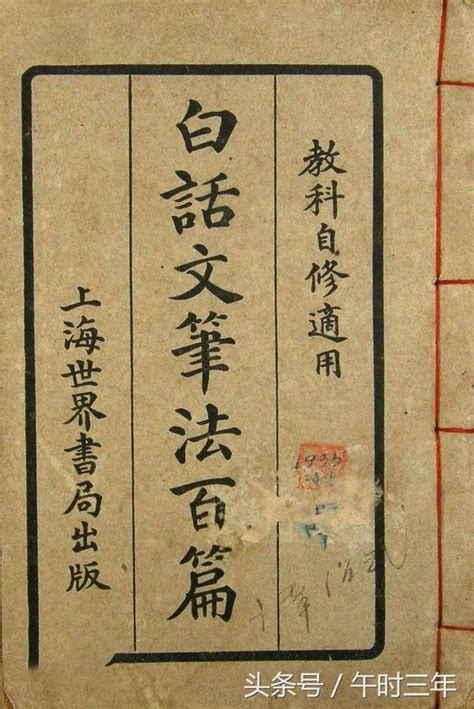 教科自修適用
白話文筆法百篇
上海世界書局出版
头条号／午时三年